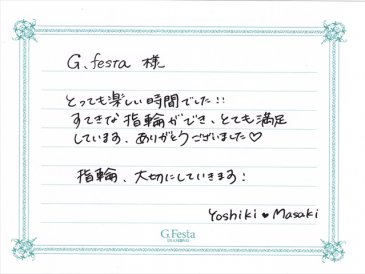 G.festa 様
とっても楽しい時間でした!!
すてきな指輪ができ、とても満足
しています。ありがとうございました♡
指輪、大切にしていきます!
Yoshiki ♥ Masaki
G.Festa
DIAMOND